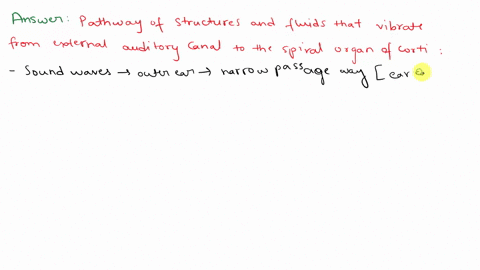 Answer: Pathway of structures and fluids that vibrate
from external auditory canal to the spiral organ of corti :
- Sound waves → outer ear → narrow passage way [ ear